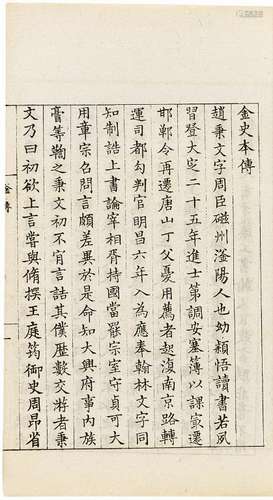 金史本傳
趙秉文字周臣磁州滏陽人也幼穎悟讀書若夙
習登大定二十五年進士第調安塞簿以課最遷
邯鄲令再遷唐山丁父憂用薦者起復南京路轉
運司都勾判官明昌六年入為應奉翰林文字同
知制誥上書論宰相胥持國當罷宗室守貞可大
用章宗召問言頗差異於是命知大興府事內族
膏等鞫之秉文初不肯言詰其僕歷數交游者秉
文乃曰初欲上言嘗與脩撰王庭筠御史周昂省